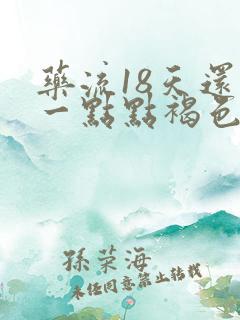 藥流18天還
一點點褐色
孫榮海
未經同意禁止轉載